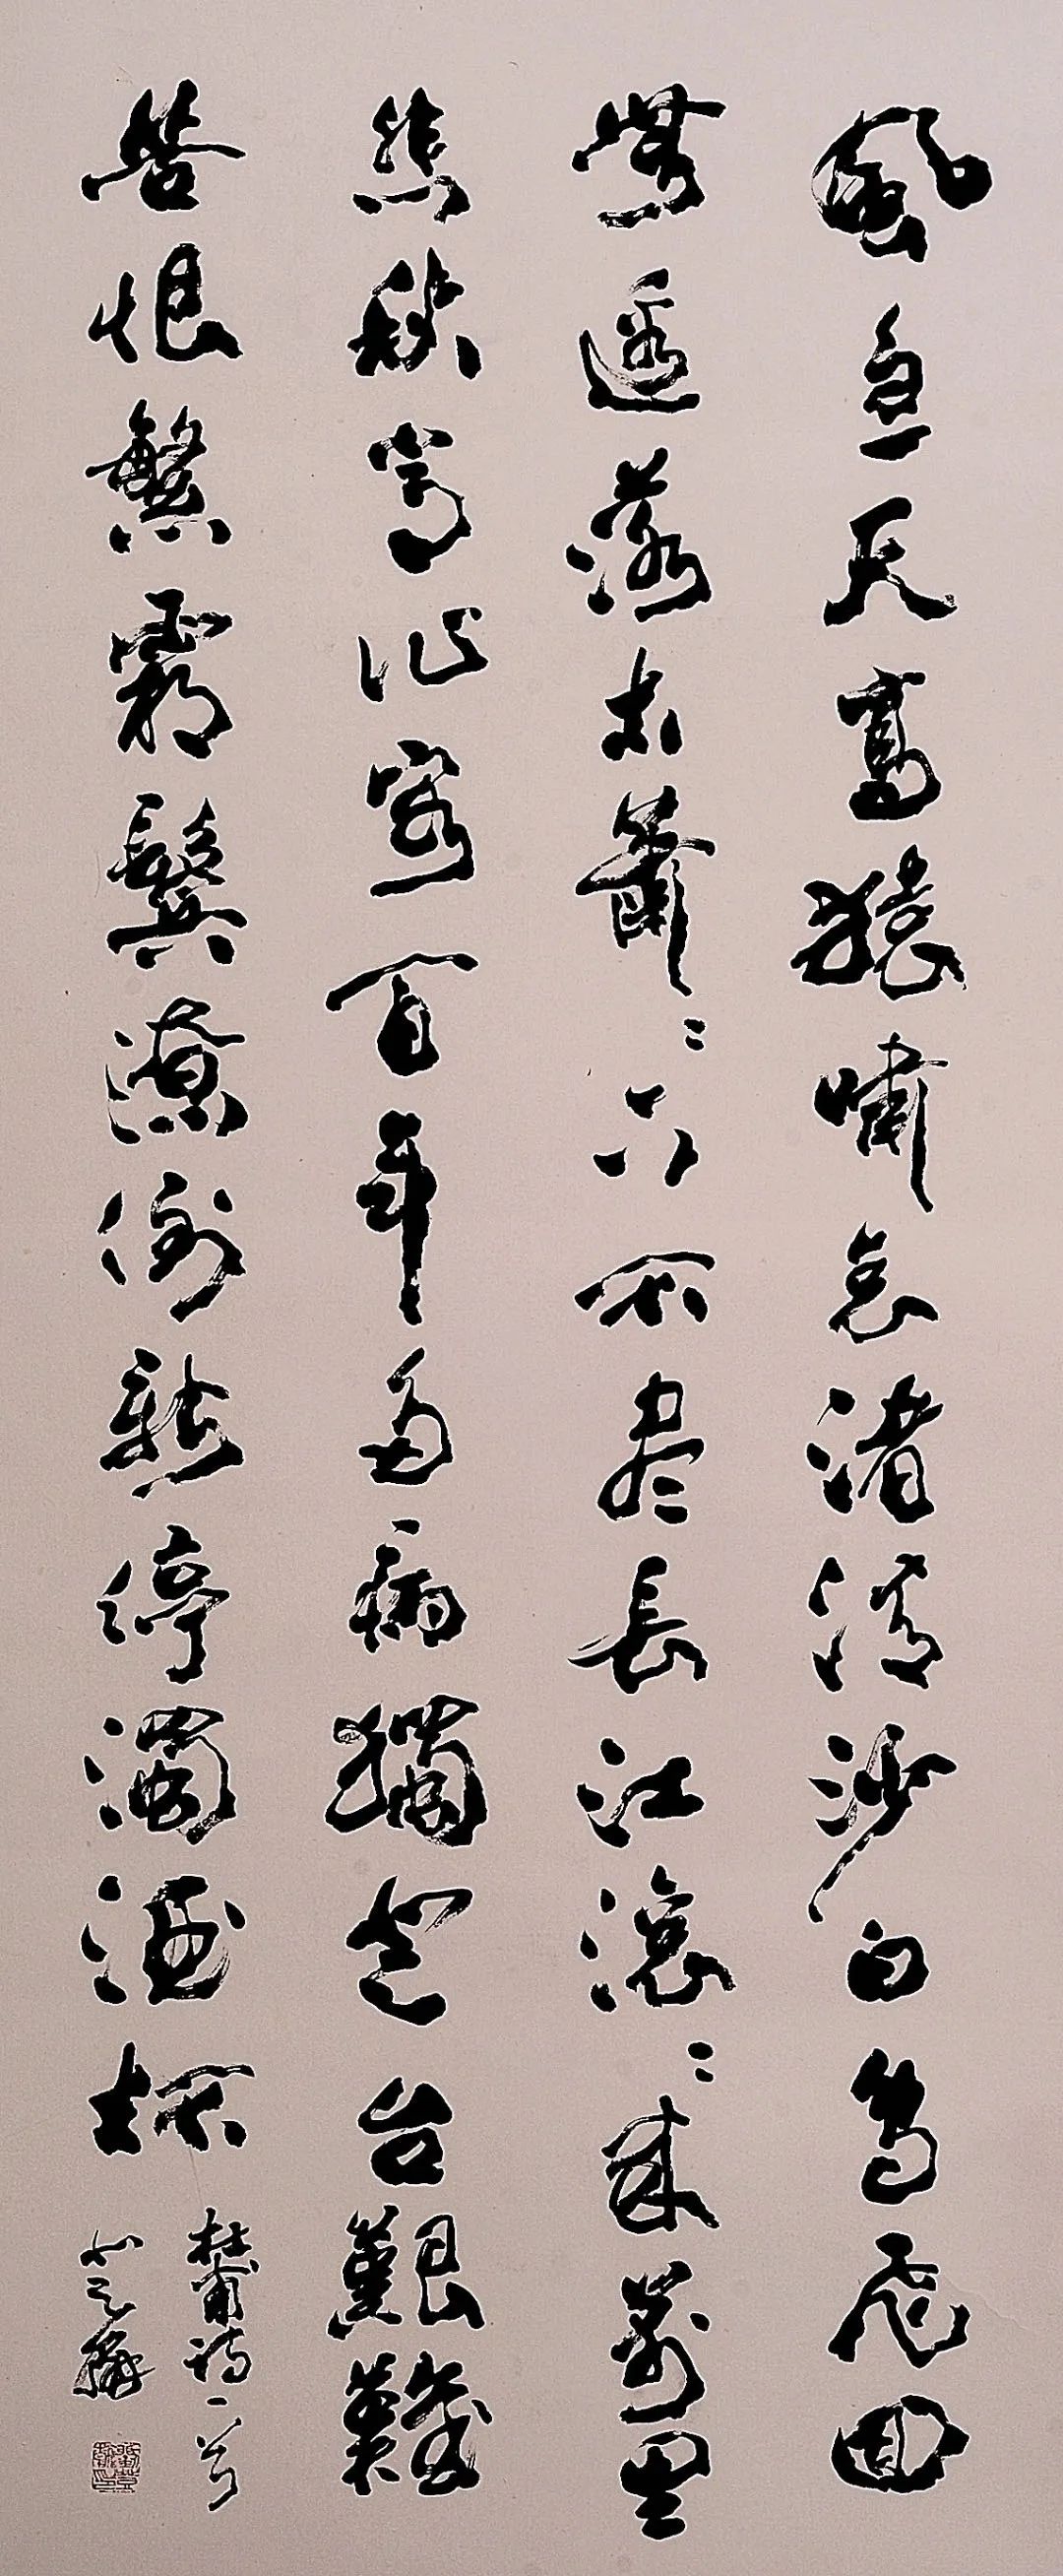 風急天高猿嘯哀渚清沙白鳥飛回
無邊落木蕭〻下不尽長江滾〻來萬里
悲秋常作客百年多病獨登台艱難
苦恨繁霜鬢潦倒新停濁酒杯
杜甫詩一首